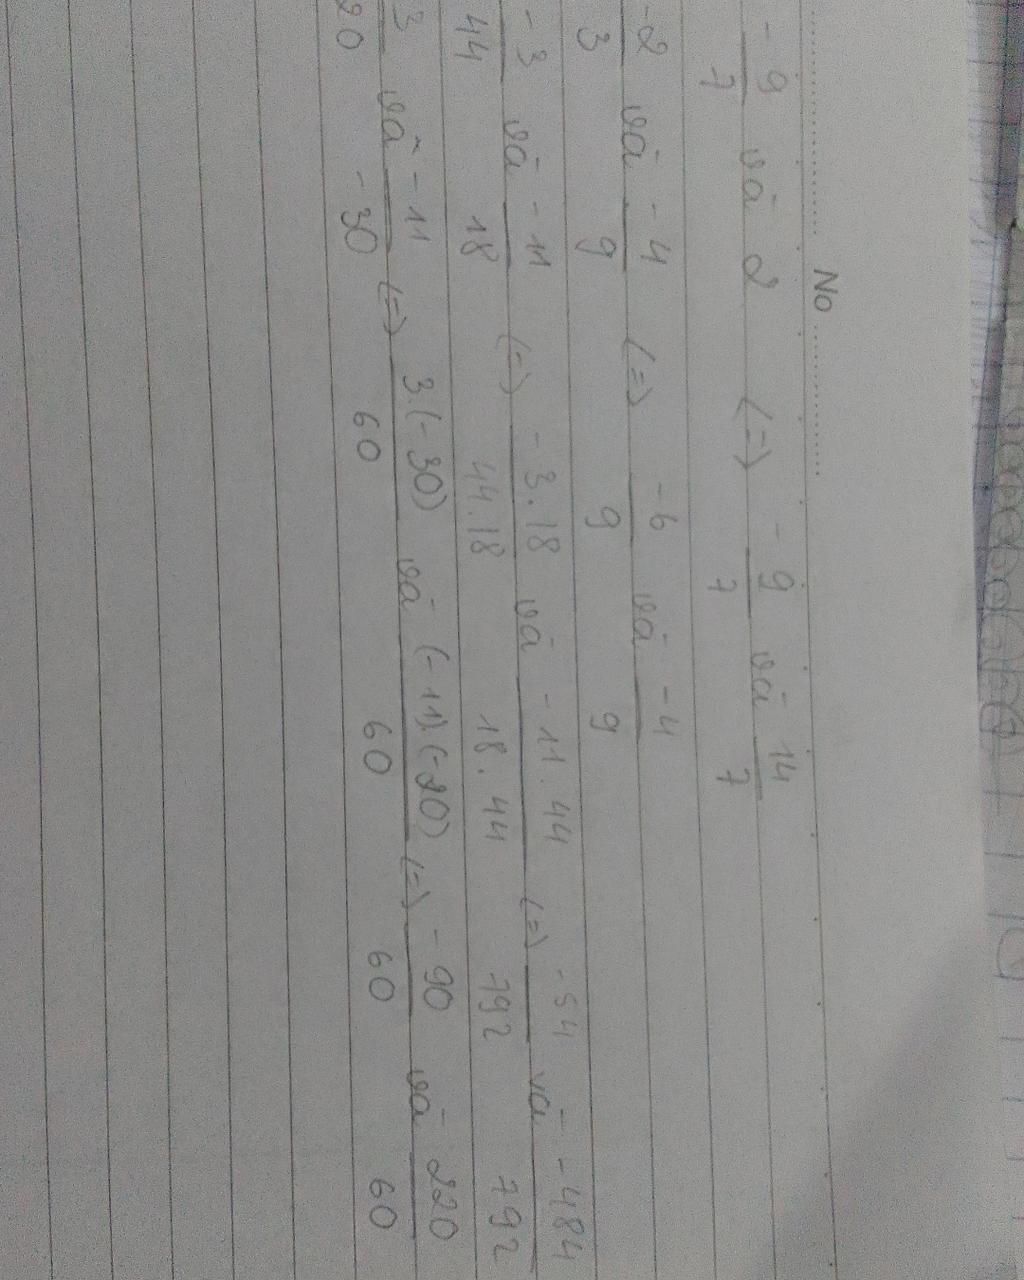 No
-9/7 và 2 (=) -9/7 và 14/7
-2/3 và -4/9 (=) -6/9 và -4/9
-3/44 và -11/18 (=) -3.18/44.18 và -11.44/18.44 (=) -54/792 và -484/792
3/20 và -11/-30 (=) 3.(-30)/60 và (-11).(-20)/60 (=) -90/60 và 220/60